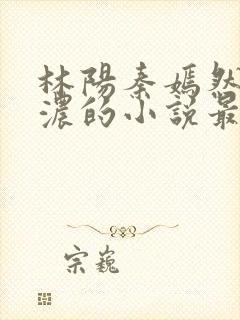 林陽秦嫣然
濃的小說最
宗巍